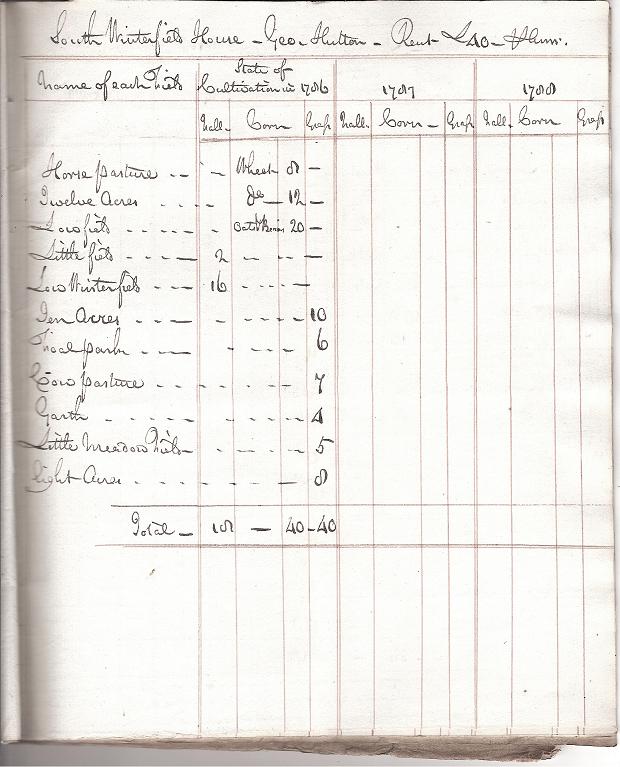 South Winterfield House - Geo. Hutton - Rent £40 - P Ann.
Name of each Field State of Cultivation in 1786 1787 1788
Fall. Corn Grass Fall. Corn - Grass Fall. Corn Grass
Horse pasture -- - Wheat 8 -
Twelve Acres ---- Do - 12 -
Low field ----- - Oats & Beans 20 -
Little field ---- 2 -- -- -
Low Winterfield --- 16 ---- -
Ten Acres ---- ----- 10
park ---- ---- 6
Cow pasture ------- 7
Garth ------- 4
Little Meadow Field - ----- 5
Eight Acres ------- 8
Total - 18 - 40 - 40